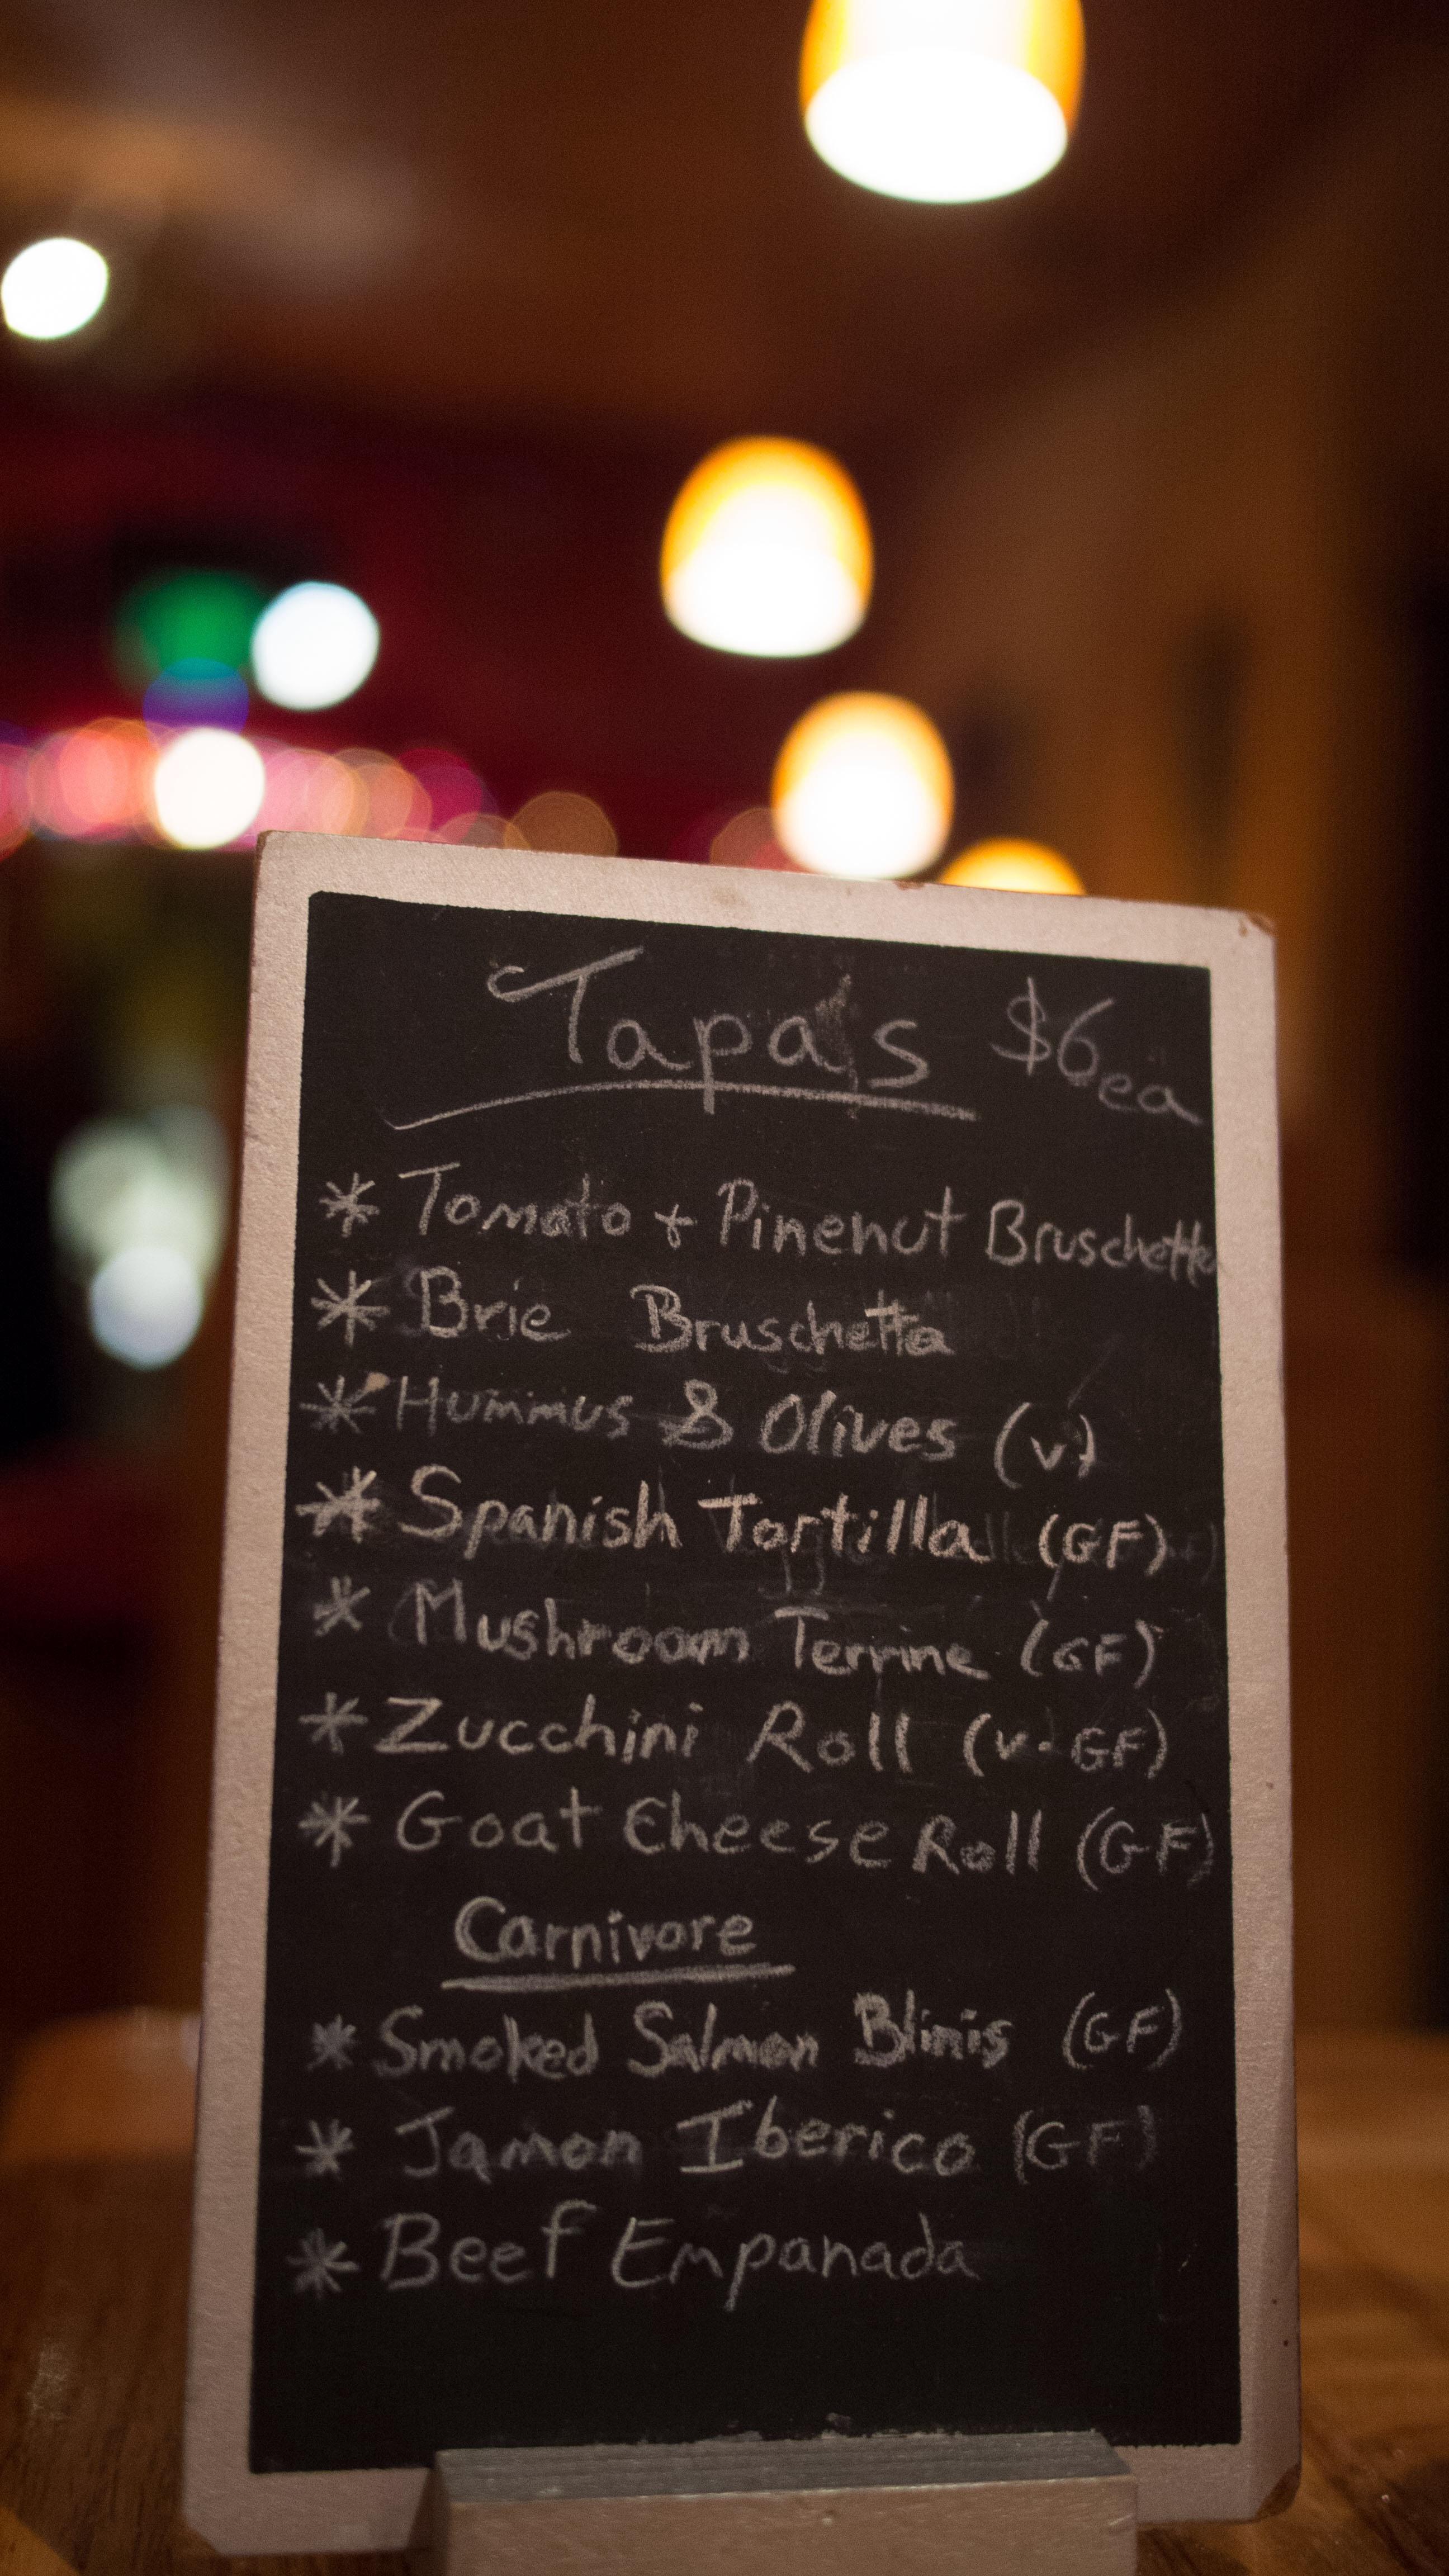 Tapa's $6ea
* Tomato + Pinenut Bruschetta
* Brie Bruschetta
* Hummus & Olives (v)
* Spanish Tortilla (GF)
* Mushroom Terrine (GF)
* Zucchini Roll (v-GF)
* Goat Cheese Roll (GF)
Carnivore
* Smoked Salmon Blinis (GF)
* Jamon Iberico (GF)
* Beef Empanada